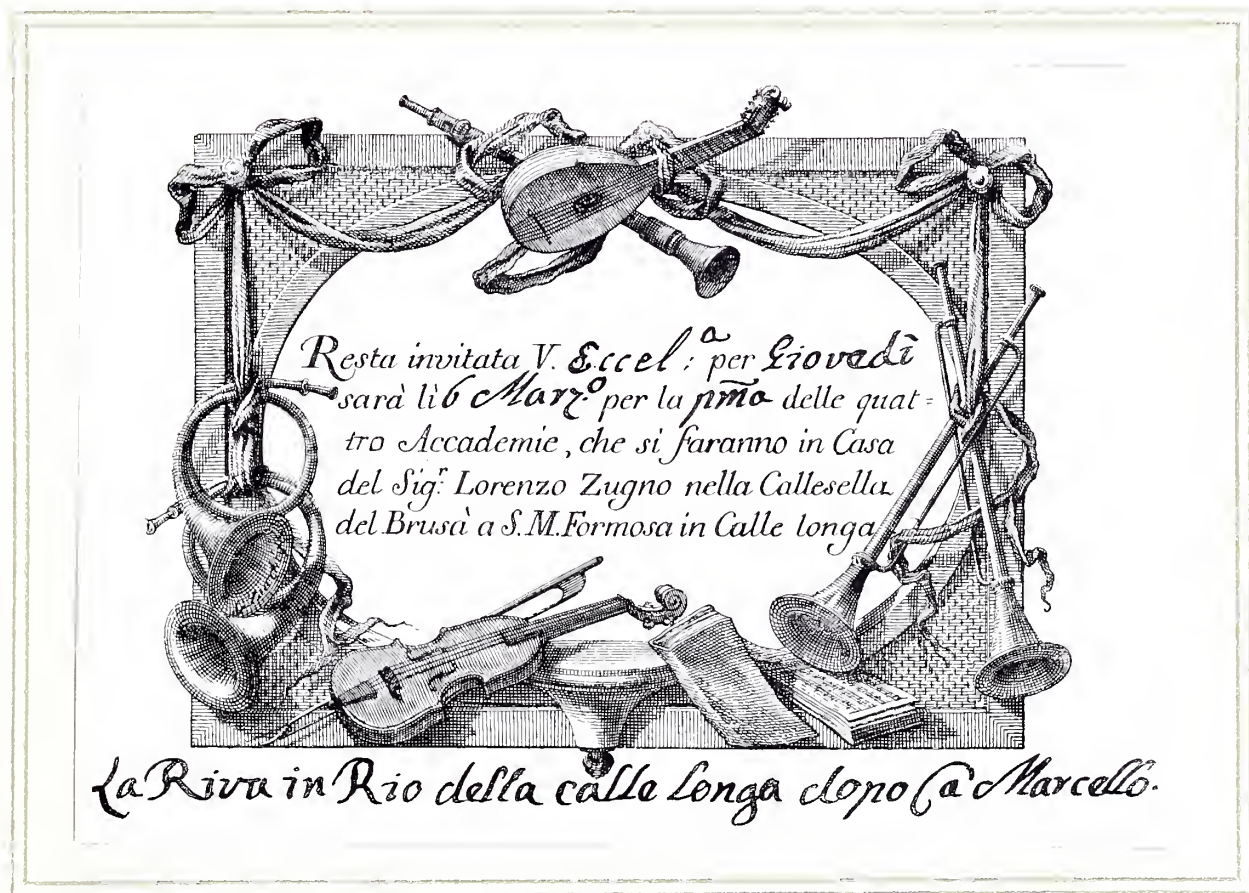 Resta invitata V. Eccel:ᵃ per Giovedì
sarà lì 6 Marz.º per la pm̃a delle quat=
tro Accademie, che si faranno in Casa
del Sig.ʳ Lorenzo Zugno nella Callesella
del Brusà a S.M.Formosa in Calle longa
La Riva in Rio della calle longa dopo Ca Marcello.